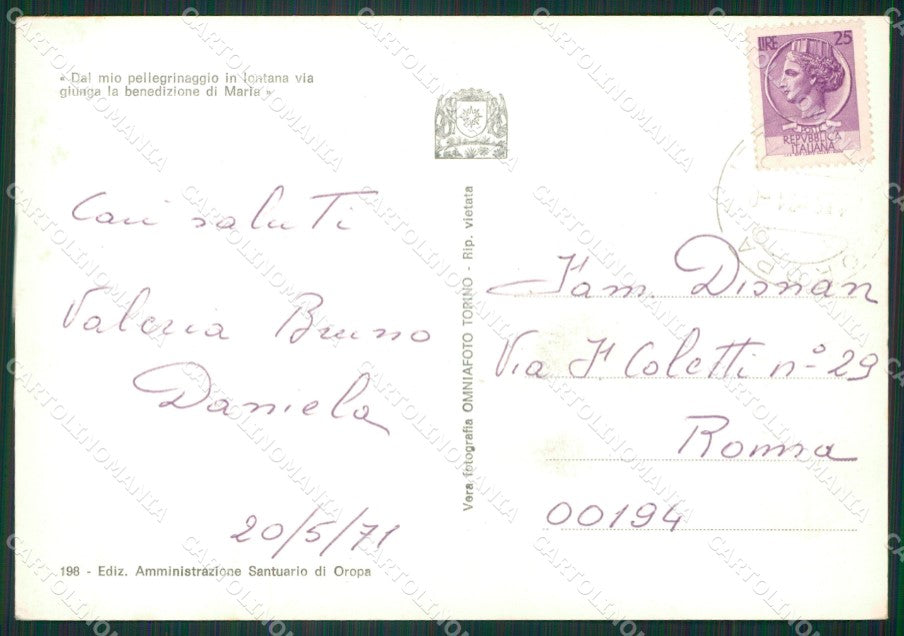 « Dal mio pellegrinaggio in lontana via
giunga la benedizione di Maria »
Cari saluti
Valeria Bruno
Daniela
20/5/71
198 - Ediz. Amministrazione Santuario di Oropa
Vera fotografia OMNIAFOTO TORINO - Rip. vietata
LIRE 25
POSTE
REPVBBLICA
ITALIANA
Fam. Disnan
Via F. Coletti n° 29
Roma
00194
CARTOLINOMANIA